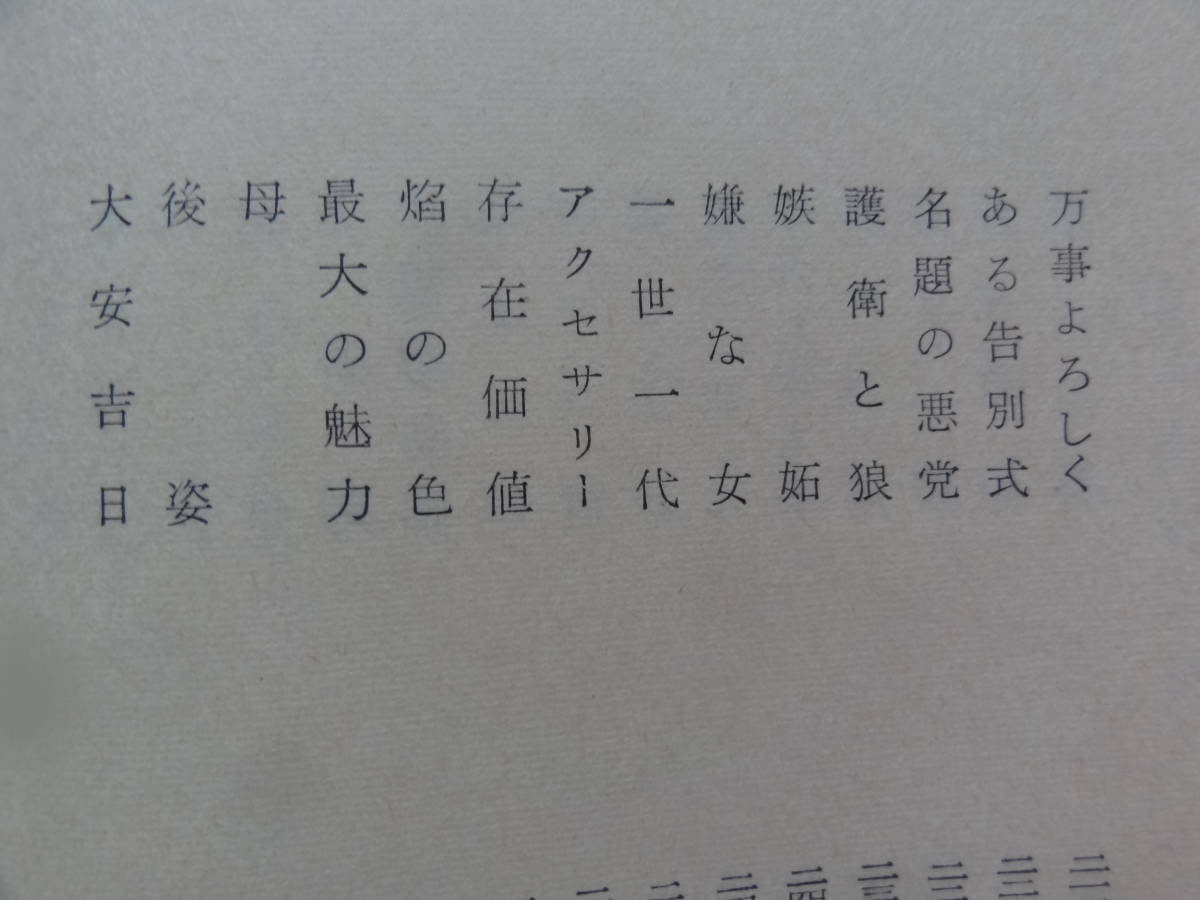 万事よろしく
ある告別式
名題の悪党
護衛と狼
嫉妬
嫌な女
一世一代
アクセサリー
存在価値
焰の色
最大の魅力
母
後姿
大安吉日